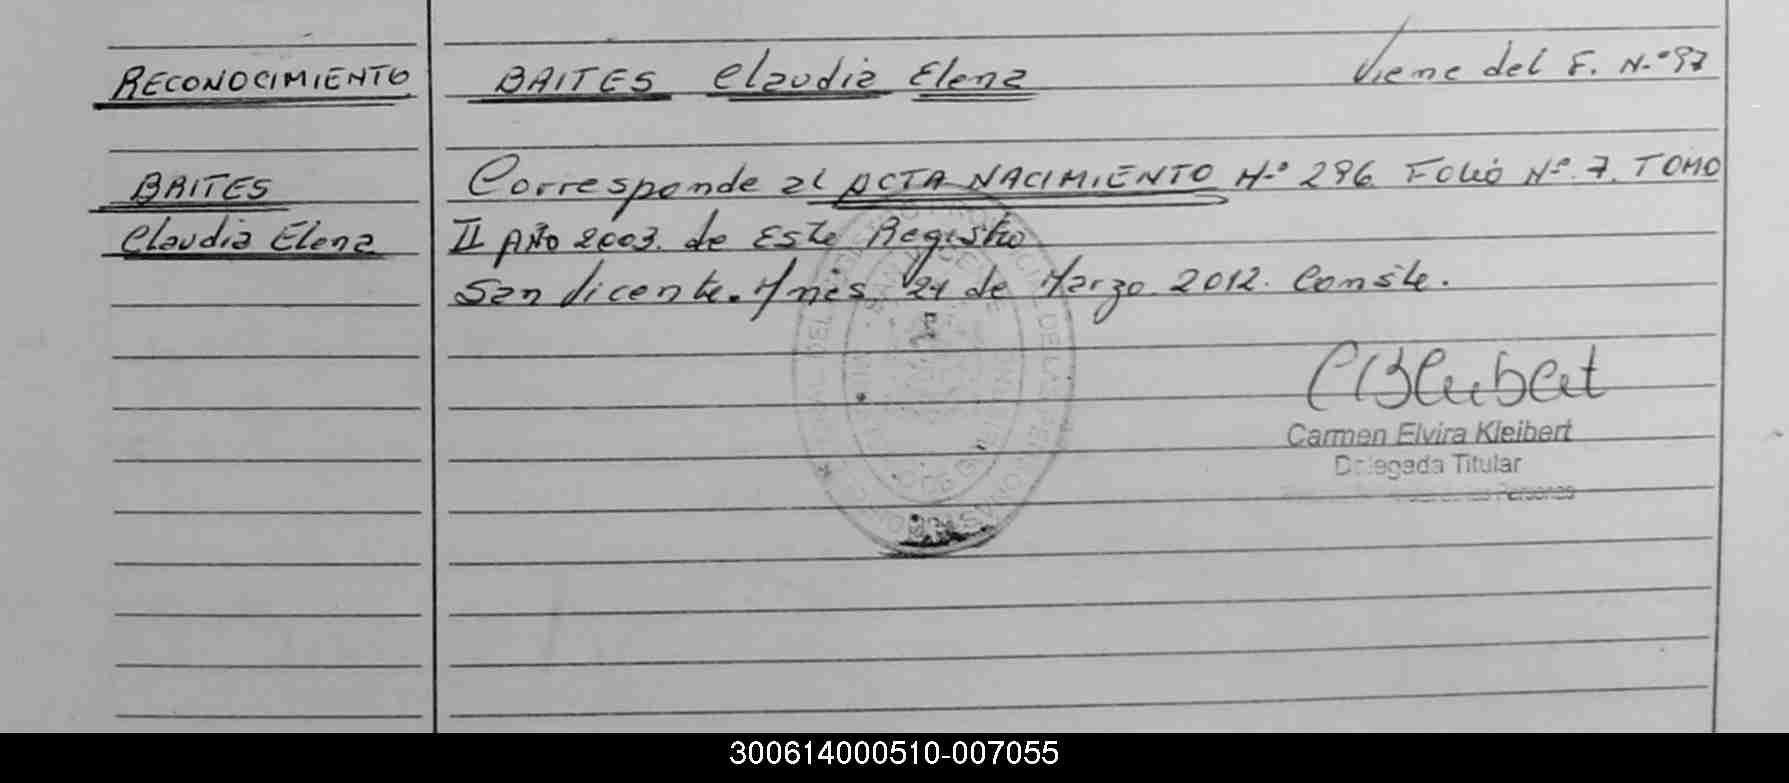 RECONOCIMIENTO BAITES Claudia Elena Viene del F. N.º 97
BAITES Corresponde al ACTA NACIMIENTO Nº 296 Folio Nº 7. TOMO
Claudia Elena II AÑO 2003. de Este Registro
San Vicente. Mnes 24 de Marzo 2012. Conste.
Carmen Elvira Kleibert
Delegada Titular
Personas
300614000510-007055